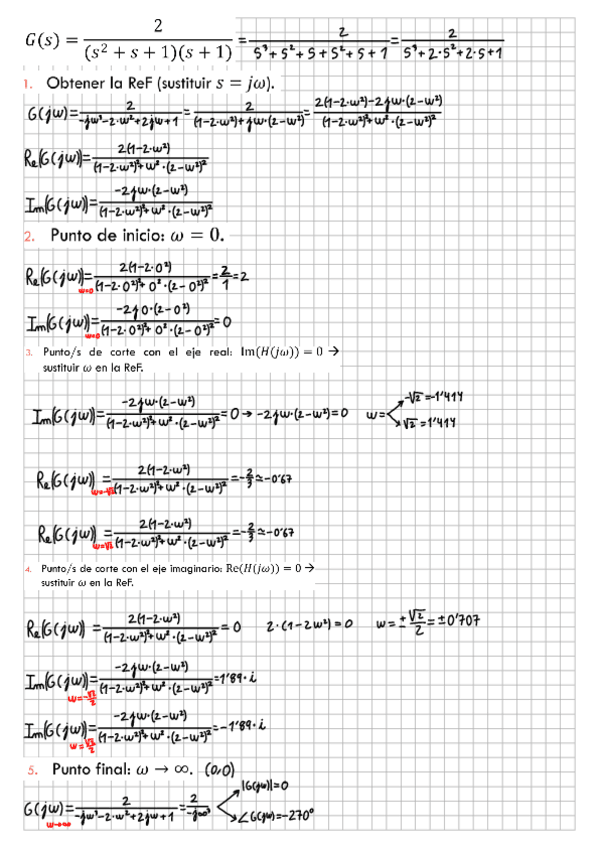 G(s) = 2/((s² + s + 1)(s + 1)) = 2/(s³+s²+s+s²+s+1) = 2/(s³+2·s²+2·s+1)
1. Obtener la ReF (sustituir s = jω).
G(jw)= 2/(-jw³-2·w²+2jw+1) = 2/((1-2·w²)+jw·(2-w²)) = (2(1-2·w²)-2jw·(2-w²))/((1-2·w²)²+w²·(2-w²)²)
Re(G(jw))= 2(1-2·w²)/((1-2·w²)²+w²·(2-w²)²)
Im(G(jw))= -2jw·(2-w²)/((1-2·w²)²+w²·(2-w²)²)
2. Punto de inicio: ω = 0.
Re(G(jw)) w=0 = 2(1-2·0²)/((1-2·0²)²+0²·(2-0²)²) = 2/1 = 2
Im(G(jw)) w=0 = -2j0·(2-0²)/((1-2·0²)²+0²·(2-0²)²) = 0
3. Punto/s de corte con el eje real: Im(H(jω)) = 0 →
sustituir ω en la ReF.
Im(G(jw))= -2jw·(2-w²)/((1-2·w²)²+w²·(2-w²)²) = 0 → -2jw·(2-w²)=0 w= -√2=-1'414
√2=1'414
Re(G(jw)) w=-√2 = 2(1-2·w²)/((1-2·w²)²+w²·(2-w²)²) = -2/3 ≃ -0'67
Re(G(jw)) w=√2 = 2(1-2·w²)/((1-2·w²)²+w²·(2-w²)²) = -2/3 ≃ -0'67
4. Punto/s de corte con el eje imaginario: Re(H(jω)) = 0 →
sustituir ω en la ReF.
Re(G(jw)) = 2(1-2·w²)/((1-2·w²)²+w²·(2-w²)²) = 0 2·(1-2w²)=0 w= ±√2/2 = ±0'707
Im(G(jw)) w=-√2/2 = -2jw·(2-w²)/((1-2·w²)²+w²·(2-w²)²) = 1'89·i
Im(G(jw)) w=√2/2 = -2jw·(2-w²)/((1-2·w²)²+w²·(2-w²)²) = -1'89·i
5. Punto final: ω → ∞. (0,0)
G(jw) w→∞ = 2/(-jw³-2·w²+2jw+1) = 2/(-j∞³) |G(jw)|=0
∠G(jw)=-270°